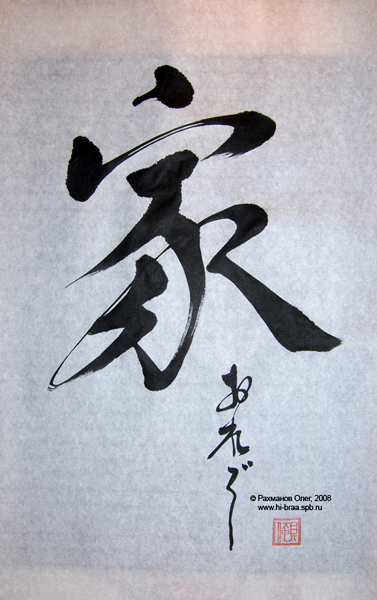 家
おれぐ
© Рахманов Олег, 2008
www.hi-braa.spb.ru